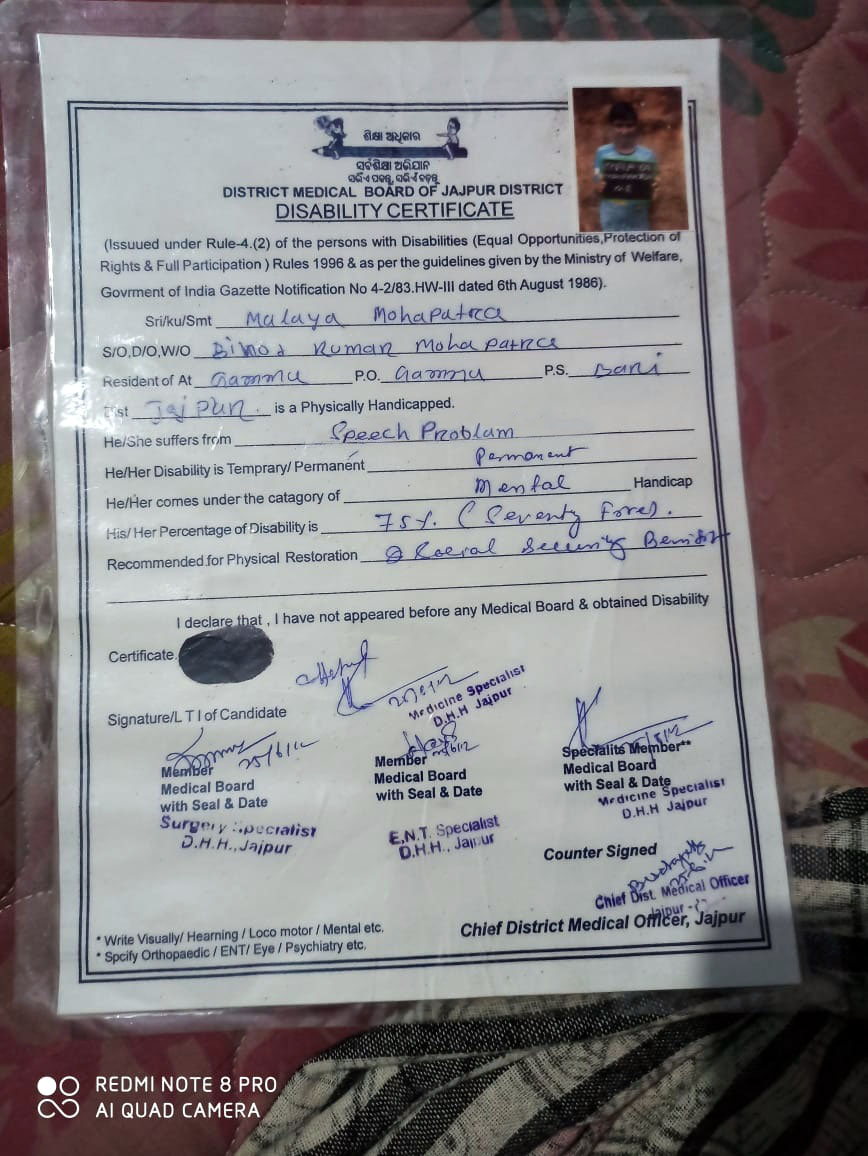 ଶିକ୍ଷା ଅଧିକାର
ସର୍ବଶିକ୍ଷା ଅଭିଯାନ
DISTRICT MEDICAL BOARD OF JAJPUR DISTRICT
DISABILITY CERTIFICATE
(Issuued under Rule-4.(2) of the persons with Disabilities (Equal Opportunities,Protection of
Rights & Full Participation ) Rules 1996 & as per the guidelines given by the Ministry of Welfare,
Govrment of India Gazette Notification No 4-2/83.HW-III dated 6th August 1986).
Sri/ku/Smt Malaya Mohapatra
S/O,D/O,W/O Binod Kumar Mohapatra
Resident of At P.O. P.S. Bari
Dist Jajpur. is a Physically Handicapped.
He/She suffers from Speech Problam
He/Her Disability is Temprary/ Permanent Permanent
He/Her comes under the catagory of Mental Handicap
His/ Her Percentage of Disability is 75%. ( Seventy
Recommended.for Physical Restoration & Social Security
I declare that , I have not appeared before any Medical Board & obtained Disability
Certificate.
Signature/L T I of Candidate
Medicine Specialist
D.H.H Jajpur
25/6/12
Member
Medical Board
with Seal & Date
Surgery Specialist
D.H.H., Jajpur
Member
Medical Board
with Seal & Date
E.N.T. Specialist
D.H.H., Jajpur
Specialits Member**
Medical Board
with Seal & Date
Medicine Specialist
D.H.H Jajpur
Counter Signed
Chief Dist. Medical Officer
Jajpur
Chief District Medical Officer, Jajpur
* Write Visually/ Hearning / Loco motor / Mental etc.
* Spcify Orthopaedic / ENT/ Eye / Psychiatry etc.
REDMI NOTE 8 PRO
AI QUAD CAMERA